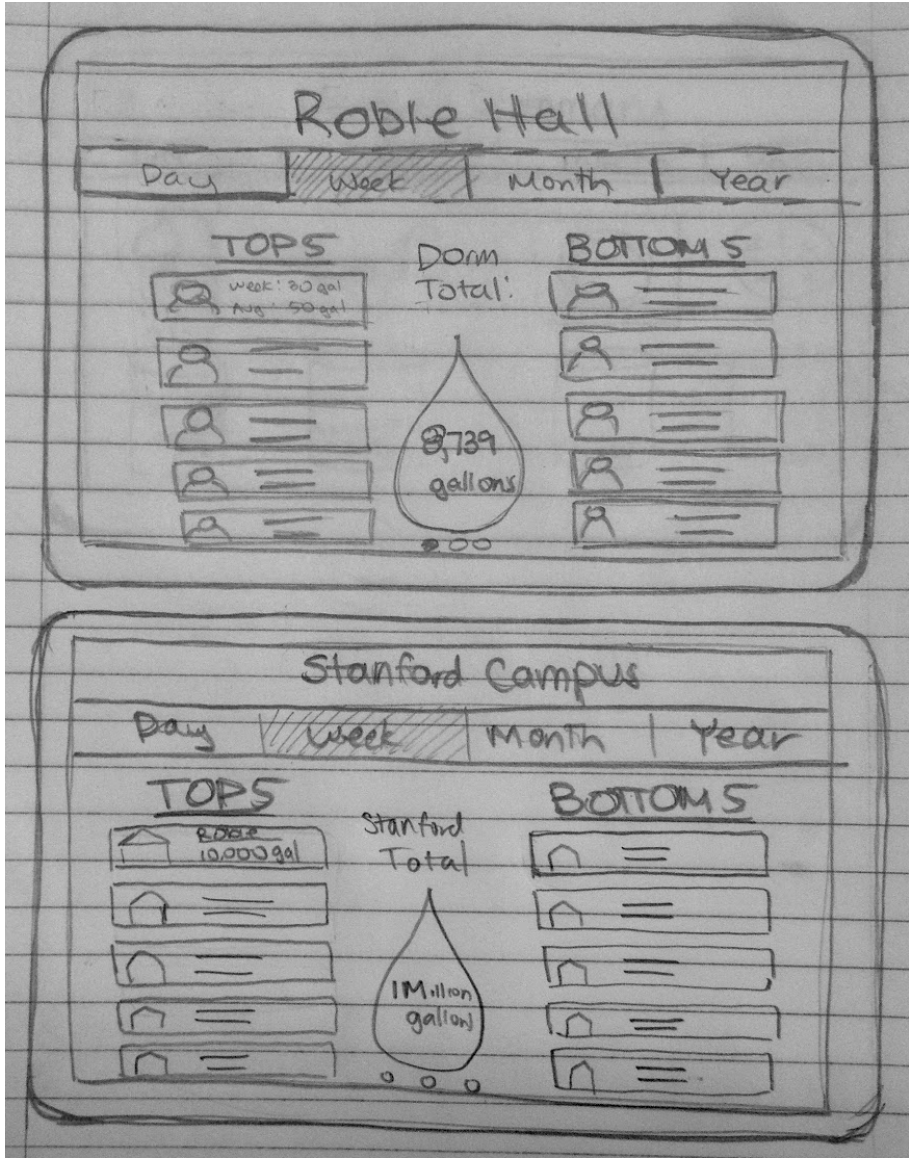 Roble Hall
Day Week Month Year
TOP 5
Week: 30 gal
Avg: 50 gal
Dorm
Total:
8,739
gallons
BOTTOM 5
Stanford Campus
Day Week Month Year
TOP 5
Roble
10,000 gal
Stanford
Total
1 Million
gallons
BOTTOM 5